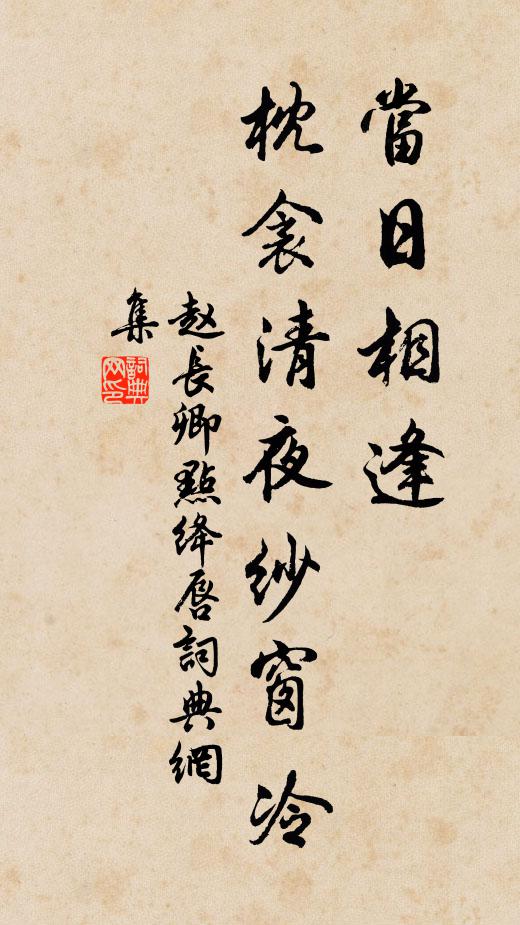 當日相逢
枕衾清夜紗窗冷
赵長卿點绛唇詞典網
集
詞典
网印